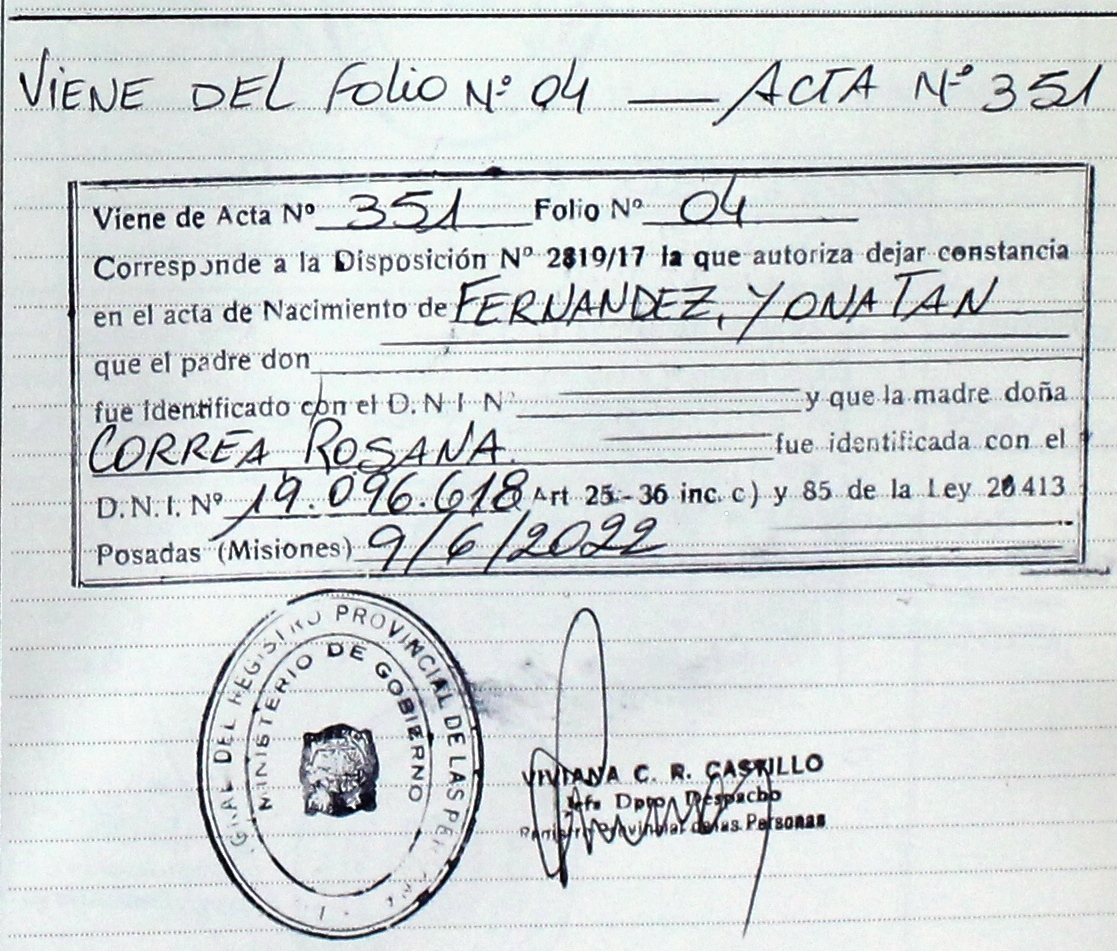 VIENE DEL FOLIO Nº 04 — ACTA Nº 351
Viene de Acta Nº 351 Folio Nº 04
Corresponde a la Disposición Nº 2819/17 la que autoriza dejar constancia
en el acta de Nacimiento de FERNANDEZ, YONATAN
que el padre don
fue identificado con el D.N I Nº y que la madre doña
CORREA, ROSANA. fue identificada con el
D.N.I. Nº 19.096.618 Art 25 - 36 inc. c) y 85 de la Ley 26 413
Posadas (Misiones) 9/6/2022
DEL REGISTRO PROVINCIAL DE LAS
MINISTERIO DE GOBIERNO
VIVIANA C. R. CASTILLO
Jefa Dpto. Despacho
Registro Provincial de las Personas